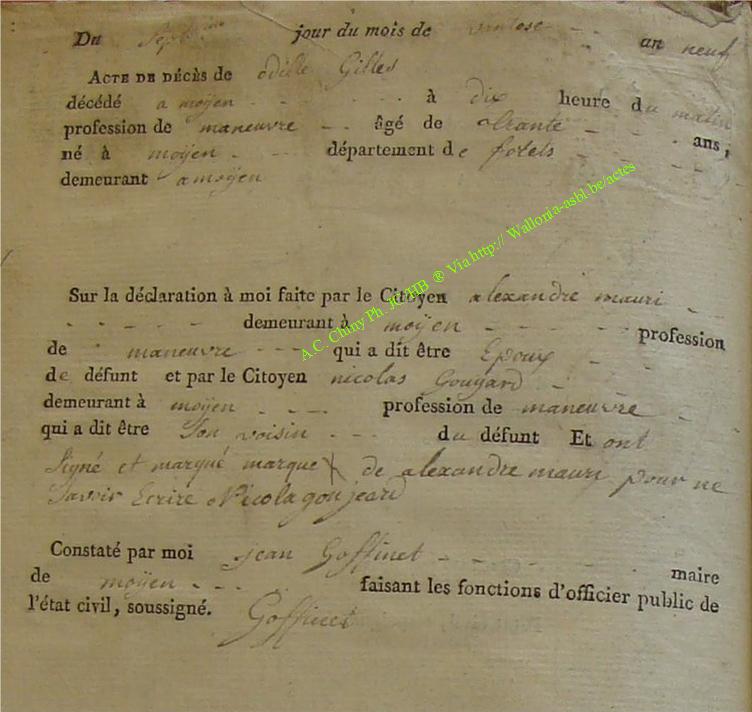 Du Septieme jour du mois de ventose an neuf
ACTE DE DÉCÈS de odille Gilles
décédé a moÿen à dix heure du matin
profession de maneuvre âgé de ans,
né à moÿen département de forets
demeurant a moÿen
Sur la déclaration à moi faite par le Citoyen alexandre mauri
demeurant à moÿen profession
de maneuvre qui a dit être Epoux
de défunt et par le Citoyen nicolas Goujard
demeurant à moÿen profession de maneuvre
qui a dit être Son voisin du défunt Et ont
Signé et marqué marque X de alexandre mauri pour ne
Savoir Ecrire Nicola goujeard
Constaté par moi jean Goffinet maire
de moÿen faisant les fonctions d'officier public de
l'état civil, soussigné. Goffinet
A.C. Chiny Ph. JC/HB ® Via http:// Wallonia-asbl.be/actes